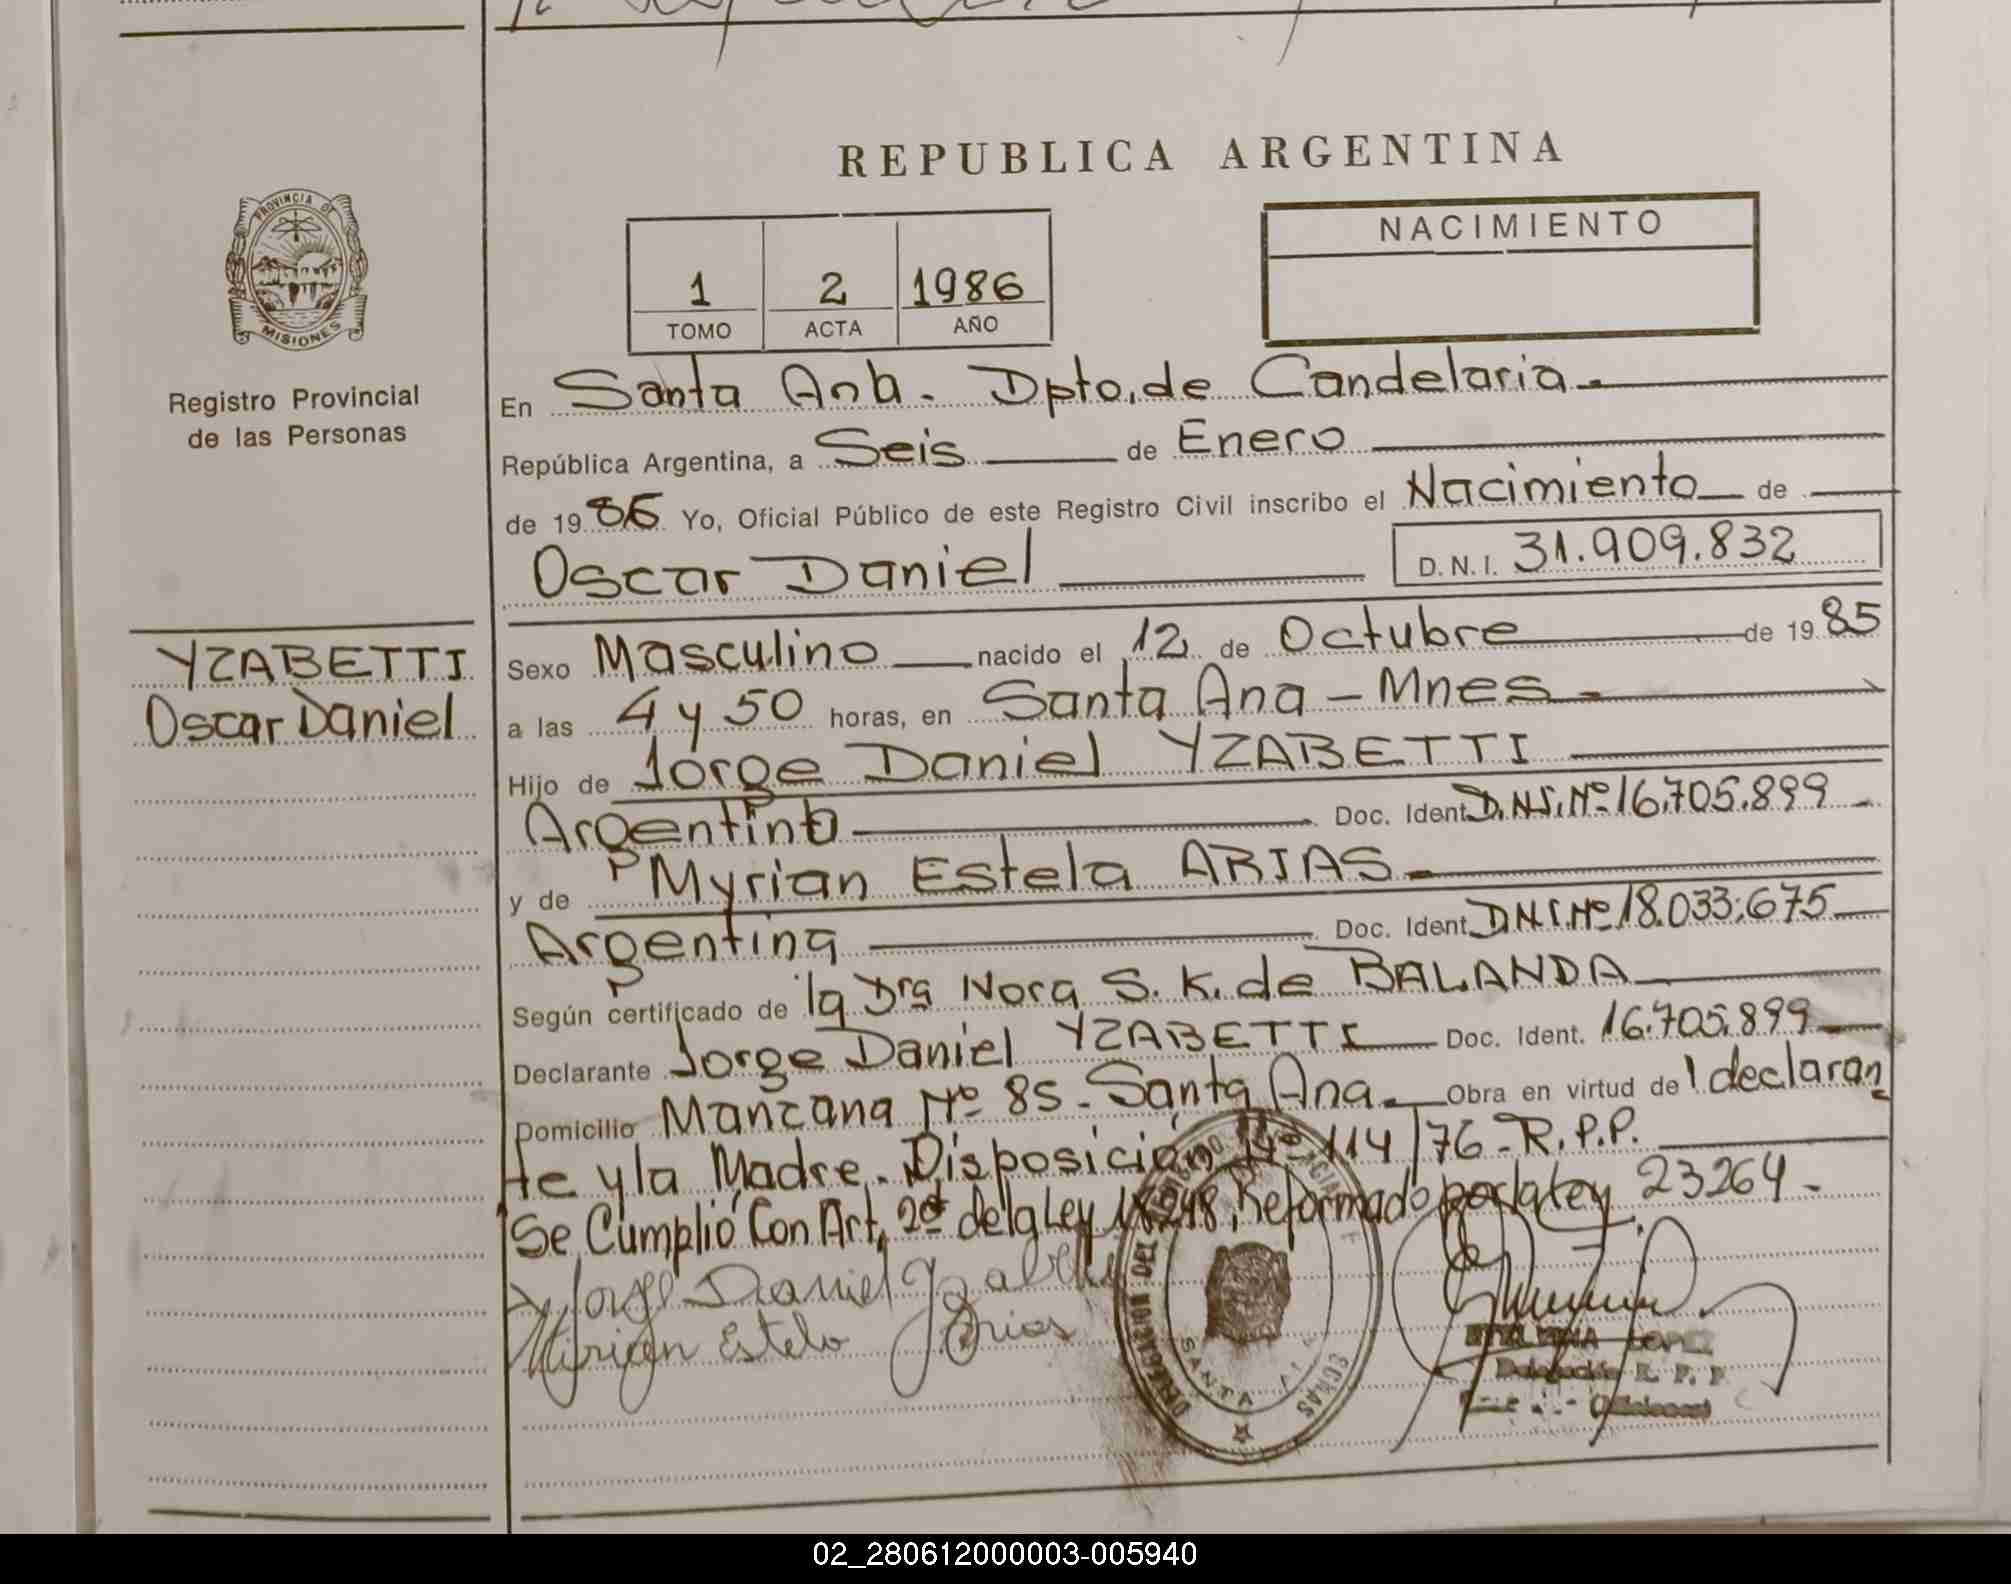 REPUBLICA ARGENTINA
PROVINCIA DE
MISIONES
Registro Provincial
de las Personas
1 2 1986
TOMO ACTA AÑO
NACIMIENTO
En Santa Ana. Dpto. de Candelaria.
República Argentina, a Seis de Enero
de 19 86 Yo, Oficial Público de este Registro Civil inscribo el Nacimiento de
Oscar Daniel D. N. I. 31.909.832
YZABETTI
Oscar Daniel
Sexo Masculino nacido el 12 de Octubre de 19 85
a las 4 y 50 horas, en Santa Ana - Mnes.
Hijo de Jorge Daniel YZABETTI
Argentino Doc. Ident. D.N.I. Nº 16.705.899
y de Myrian Estela ARIAS.
Argentina Doc. Ident. D.N.I. Nº 18.033.675
Según certificado de la Dra Nora S. K. de BALANDA
Declarante Jorge Daniel YZABETTI Doc. Ident. 16.705.899
Domicilio Manzana Nº 85. Santa Ana. Obra en virtud de l declaran
te y la Madre. Disposición Nº 114/76 - R.P.P.
Se Cumplió Con Art. 2º de la Ley 18248, Reformado por la Ley 23264.
Jorge Daniel Yzabetti
Mirian Estela Arias
DELEGACION DEL
SANTA
LOPEZ
Delegación R. P. P
(Misiones)
02_280612000003-005940